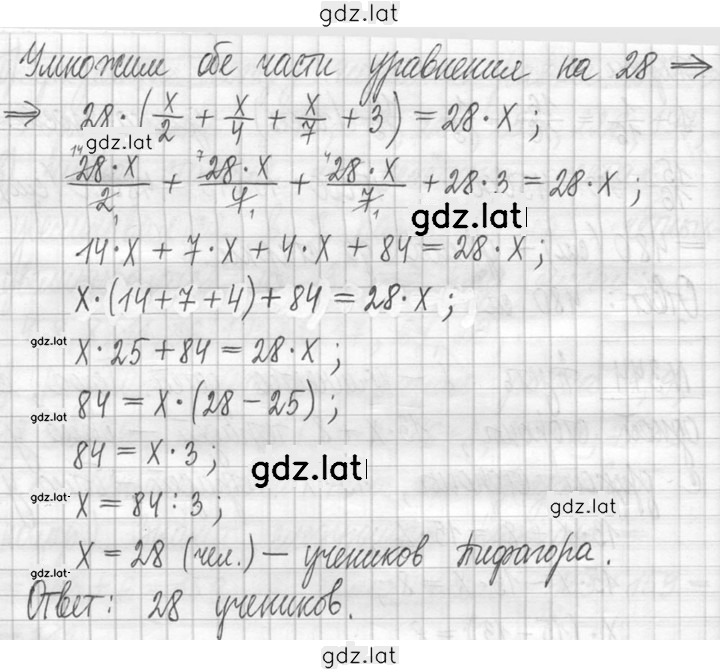 gdz.lat
Умножим обе части уравнения на 28 ⇒
⇒ 28·(x/2 + x/4 + x/7 + 3) = 28·x ;
gdz.lat
¹⁴28·x/2₁ + ⁷28·x/4₁ + ⁴28·x/7₁ + 28·3 = 28·x ;
gdz.lat
14·x + 7·x + 4·x + 84 = 28·x ;
x·(14+7+4)+84 = 28·x ;
gdz.lat
x·25+84=28·x ;
gdz.lat
84 = x·(28-25) ;
84 = x·3 ;
gdz.lat
gdz.lat
x = 84:3 ;
gdz.lat
x = 28 (чел.) – учеников Пифагора.
gdz.lat
Ответ: 28 учеников.
gdz.lat